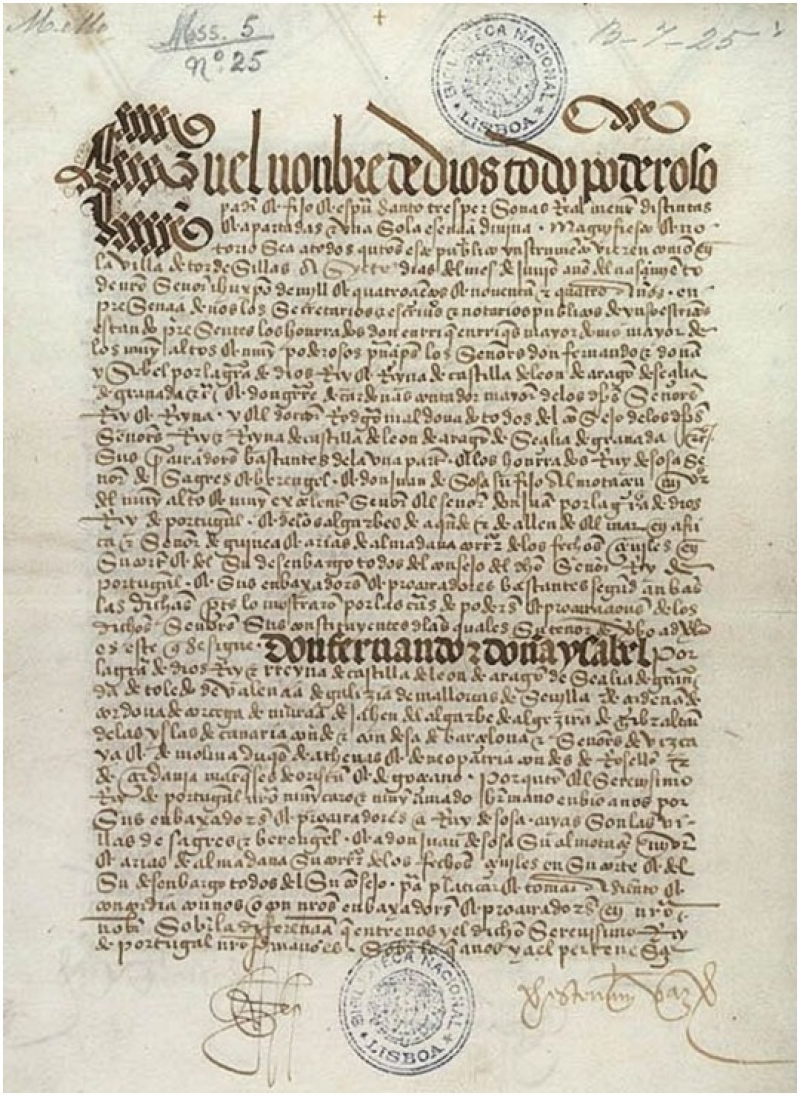 Mss. 5
Nº 25
B-7-25
BIBLIOTECA NACIONAL
LISBOA
En el nonbre de dios todo poderoso
padre & fijo & espu santo tres personas Real mente distintas
& apartadas & vna Sola esençia diuina. Magnifiesto & no
torio Sea a todos quantos este publico ynstrumento vieren como en
la villa de tordesillas A Syete dias del mes de junio año del nasçimiento
de nro Señor ihu xpo de myll & quatroçientos & nouenta & quatro años. en
presençia de nos los Secretarios & escriuanos & notarios publicos de yuso escriptos
estando presentes los honrrados don enrrique enrriques mayordomo mayor de
los muy altos & muy poderosos prinçipes los Señores don fernando & doña
ysabel por la graçia de dios Rey & Reyna de castilla de leon de aragon de seçilia
de granada & & don gutierre de cardenas contador mayor de los dichos Señores
Rey & Reyna. y el doctor Rodrigo maldonado todos del consejo de los dichos
Señores Rey & Reyna de castilla de leon de aragon de Seçilia de granada
Sus procuradores bastantes de la vna parte. & los honrrados Ruy de sosa Se
ñor de Sagres & berengel. & don juan de Sosa su fijo Almotaçen mayor
del muy alto & muy exçelente Señor el señor don juan por la graçia de dios
Rey de portugal. & de los algarbes de aquende & de allende el mar en afri
ca & Señor de guinea & arias de almadana corregidor de los fechos çiuiles en
Su corte & del Su desenbargo todos del consejo del dicho Señor Rey de
portugal. & Sus enbaxadores & procuradores bastantes segund anbas
las dichas partes lo mostraron por las cartas de poderes & procuraçiones de los
dichos Señores Sus constituyentes de las quales Su tenor de
es este que se sigue. Don fernando & doña ysabel por
la graçia de dios Rey & Reyna de castilla de leon de aragon de Seçilia de grana
da de toledo de valençia de galizia de mallorcas de Seuilla de çerdeña de
cordoua de corçega de murçia de jahen del algarbe de algezira de gibraltar
de las yslas de canaria conde & condesa de barçelona & Señores de vizca
ya & de molina duques de athenas & de neopatria condes de Rosellon
de çerdania marqueses de oristan & de goçiano. por quanto el Serenisimo
Rey de portugal nro muy caro & muy amado hermano enbio a nos por
Sus enbaxadores & procuradores a Ruy de sosa. cuyas Son las vi
llas de sagres & berengel. & a don juan de sosa Su almotaçen mayor
& arias de almadana Su corregidor de los fechos çiuiles en Su corte & del
Su desenbargo todos del Su consejo. para platicar & tomar asiento &
concordia con nos o con nros enbaxadores & procuradores en nro
nonbre Sobre la diferençia que entre nos y el dicho Serenissimo Rey
de portugal nro hermano es Sobre lo que a nos y a el perteneçe
BIBLIOTECA NACIONAL
LISBOA